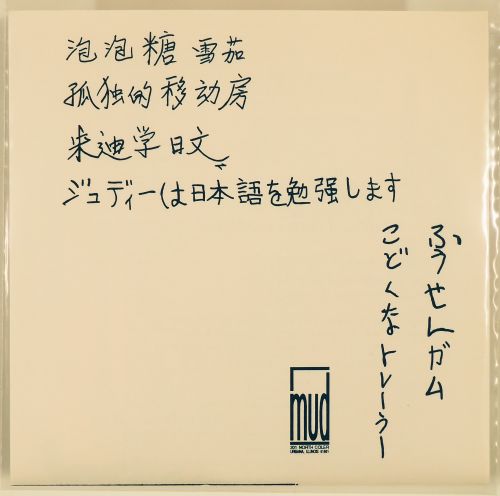 泡泡糖 雪茄
孤独的移动房
朱迪学日文
ジュディーは日本語を勉強します
ふうせんガム
こどくなトレーラー
mud